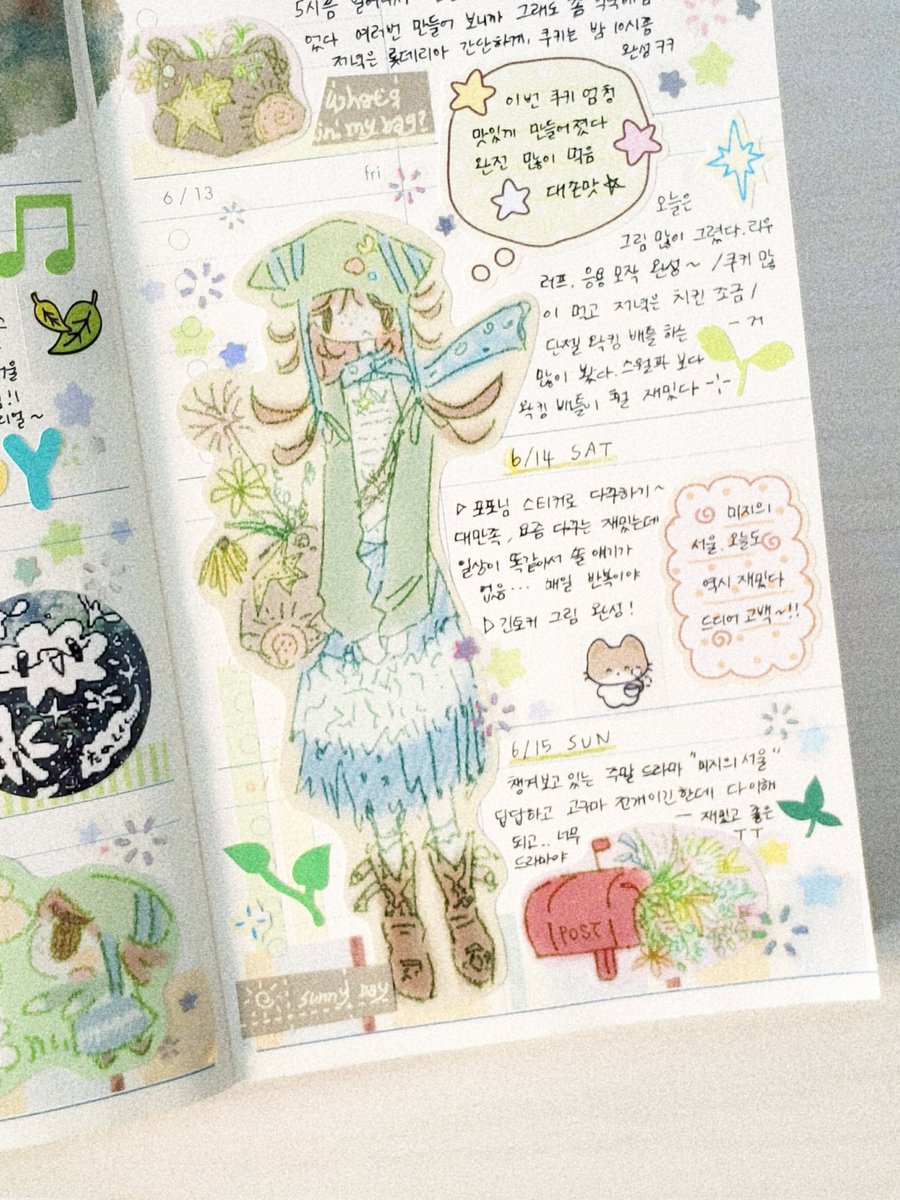 5시쯤
었다 여러번 만들어 보니까 그래도 좀
저녁은 롯데리아 간단하게, 쿠키는 밤 10시쯤
완성 ㅋㅋ
what's
in my bag?
이번 쿠키 엄청
맛있게 만들어졌다
완전 많이 먹음
대존맛
6/13
fri
오늘은
그림 많이 그렸다. 라우
러프, 응용 모작 완성~ /쿠키 많
이 먹고 저녁은 치킨 조금/
단젤 왁킹 배틀 하는 - 거
많이 봤다. 스월파 보다
왁킹 배틀이 훨 재밌다
6/14 SAT
▷포포님 스티커로 다꾸하기~
대만족, 요즘 다꾸는 재밌는데
일상이 똑같아서 쓸 얘기가
없음... 매일 반복이야
▷긴토키 그림 완성!
미지의
서울, 오늘도
역시 재밌다
드디어 고백~!!
6/15 SUN
챙겨보고 있는 주말 드라마 "미지의 서울"
답답하고 고구마 전개이긴한데 다 이해
되고.. 너무 - 재밌고 좋은
드라마야 ㅜㅜ
POST
sunny day
울
!!
리얼~
Y